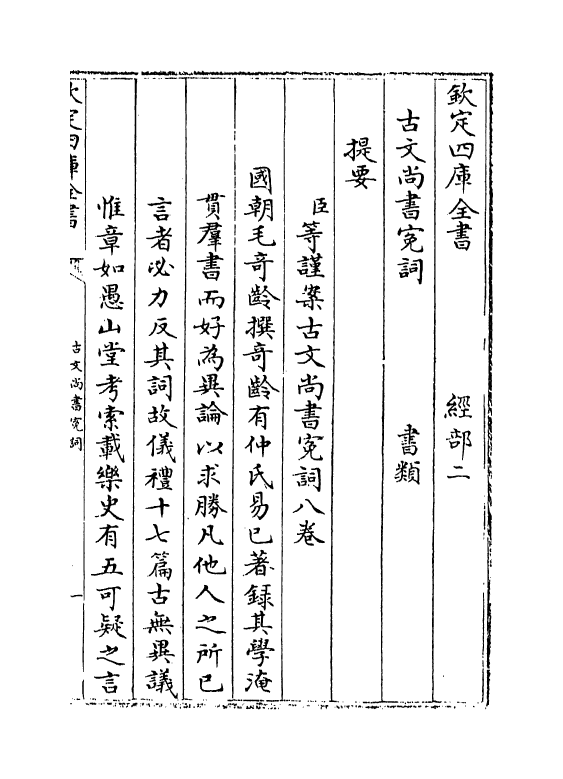 欽定四庫全書 經部二
古文尚書寃詞 書類
提要
臣等謹案古文尚書寃詞八卷
國朝毛奇齡撰奇齡有仲氏易已著録其學淹
貫羣書而好為異論以求勝凡他人之所已
言者必力反其詞故儀禮十七篇古無異議
惟章如愚山堂考索載樂史有五可疑之言
欽定四庫全書 古文尚書寃詞 一